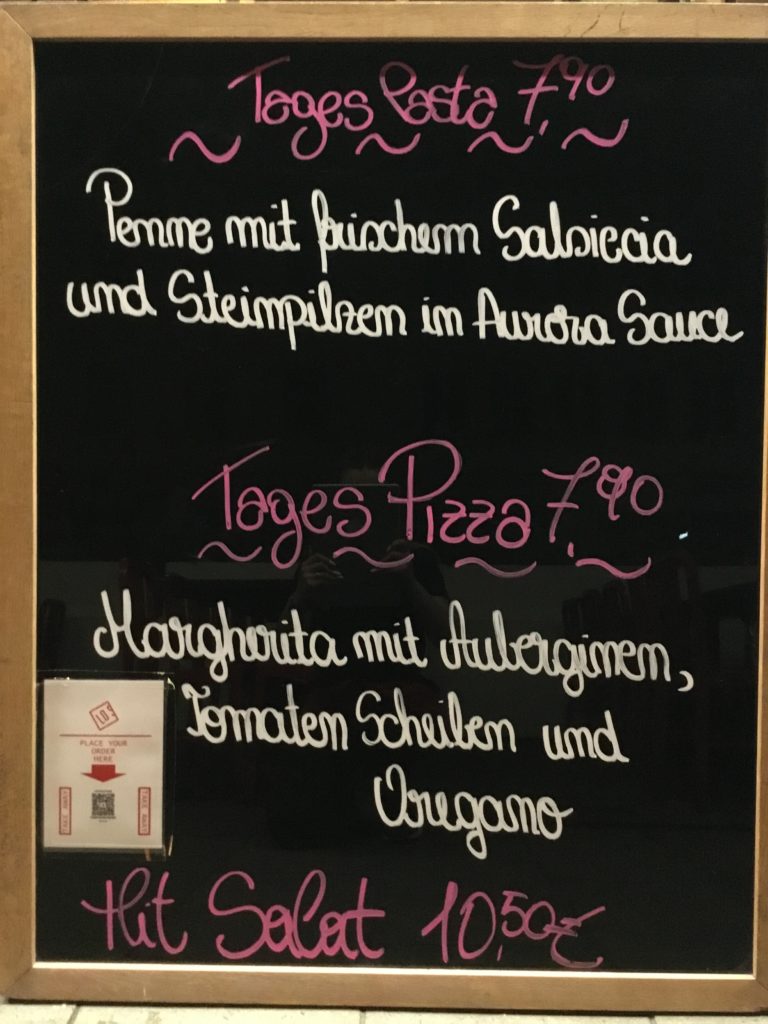 Tages Pasta 7,90
Penne mit frischem Salsiccia
und Steinpilzen in Aurora Sauce
Tages Pizza 7,90
Margherita mit Auberginen,
Tomaten Scheiben und
Oregano
PLACE YOUR
ORDER
HERE
TAKE AWAY
TAKE AWAY
Hit Salat 10,50€